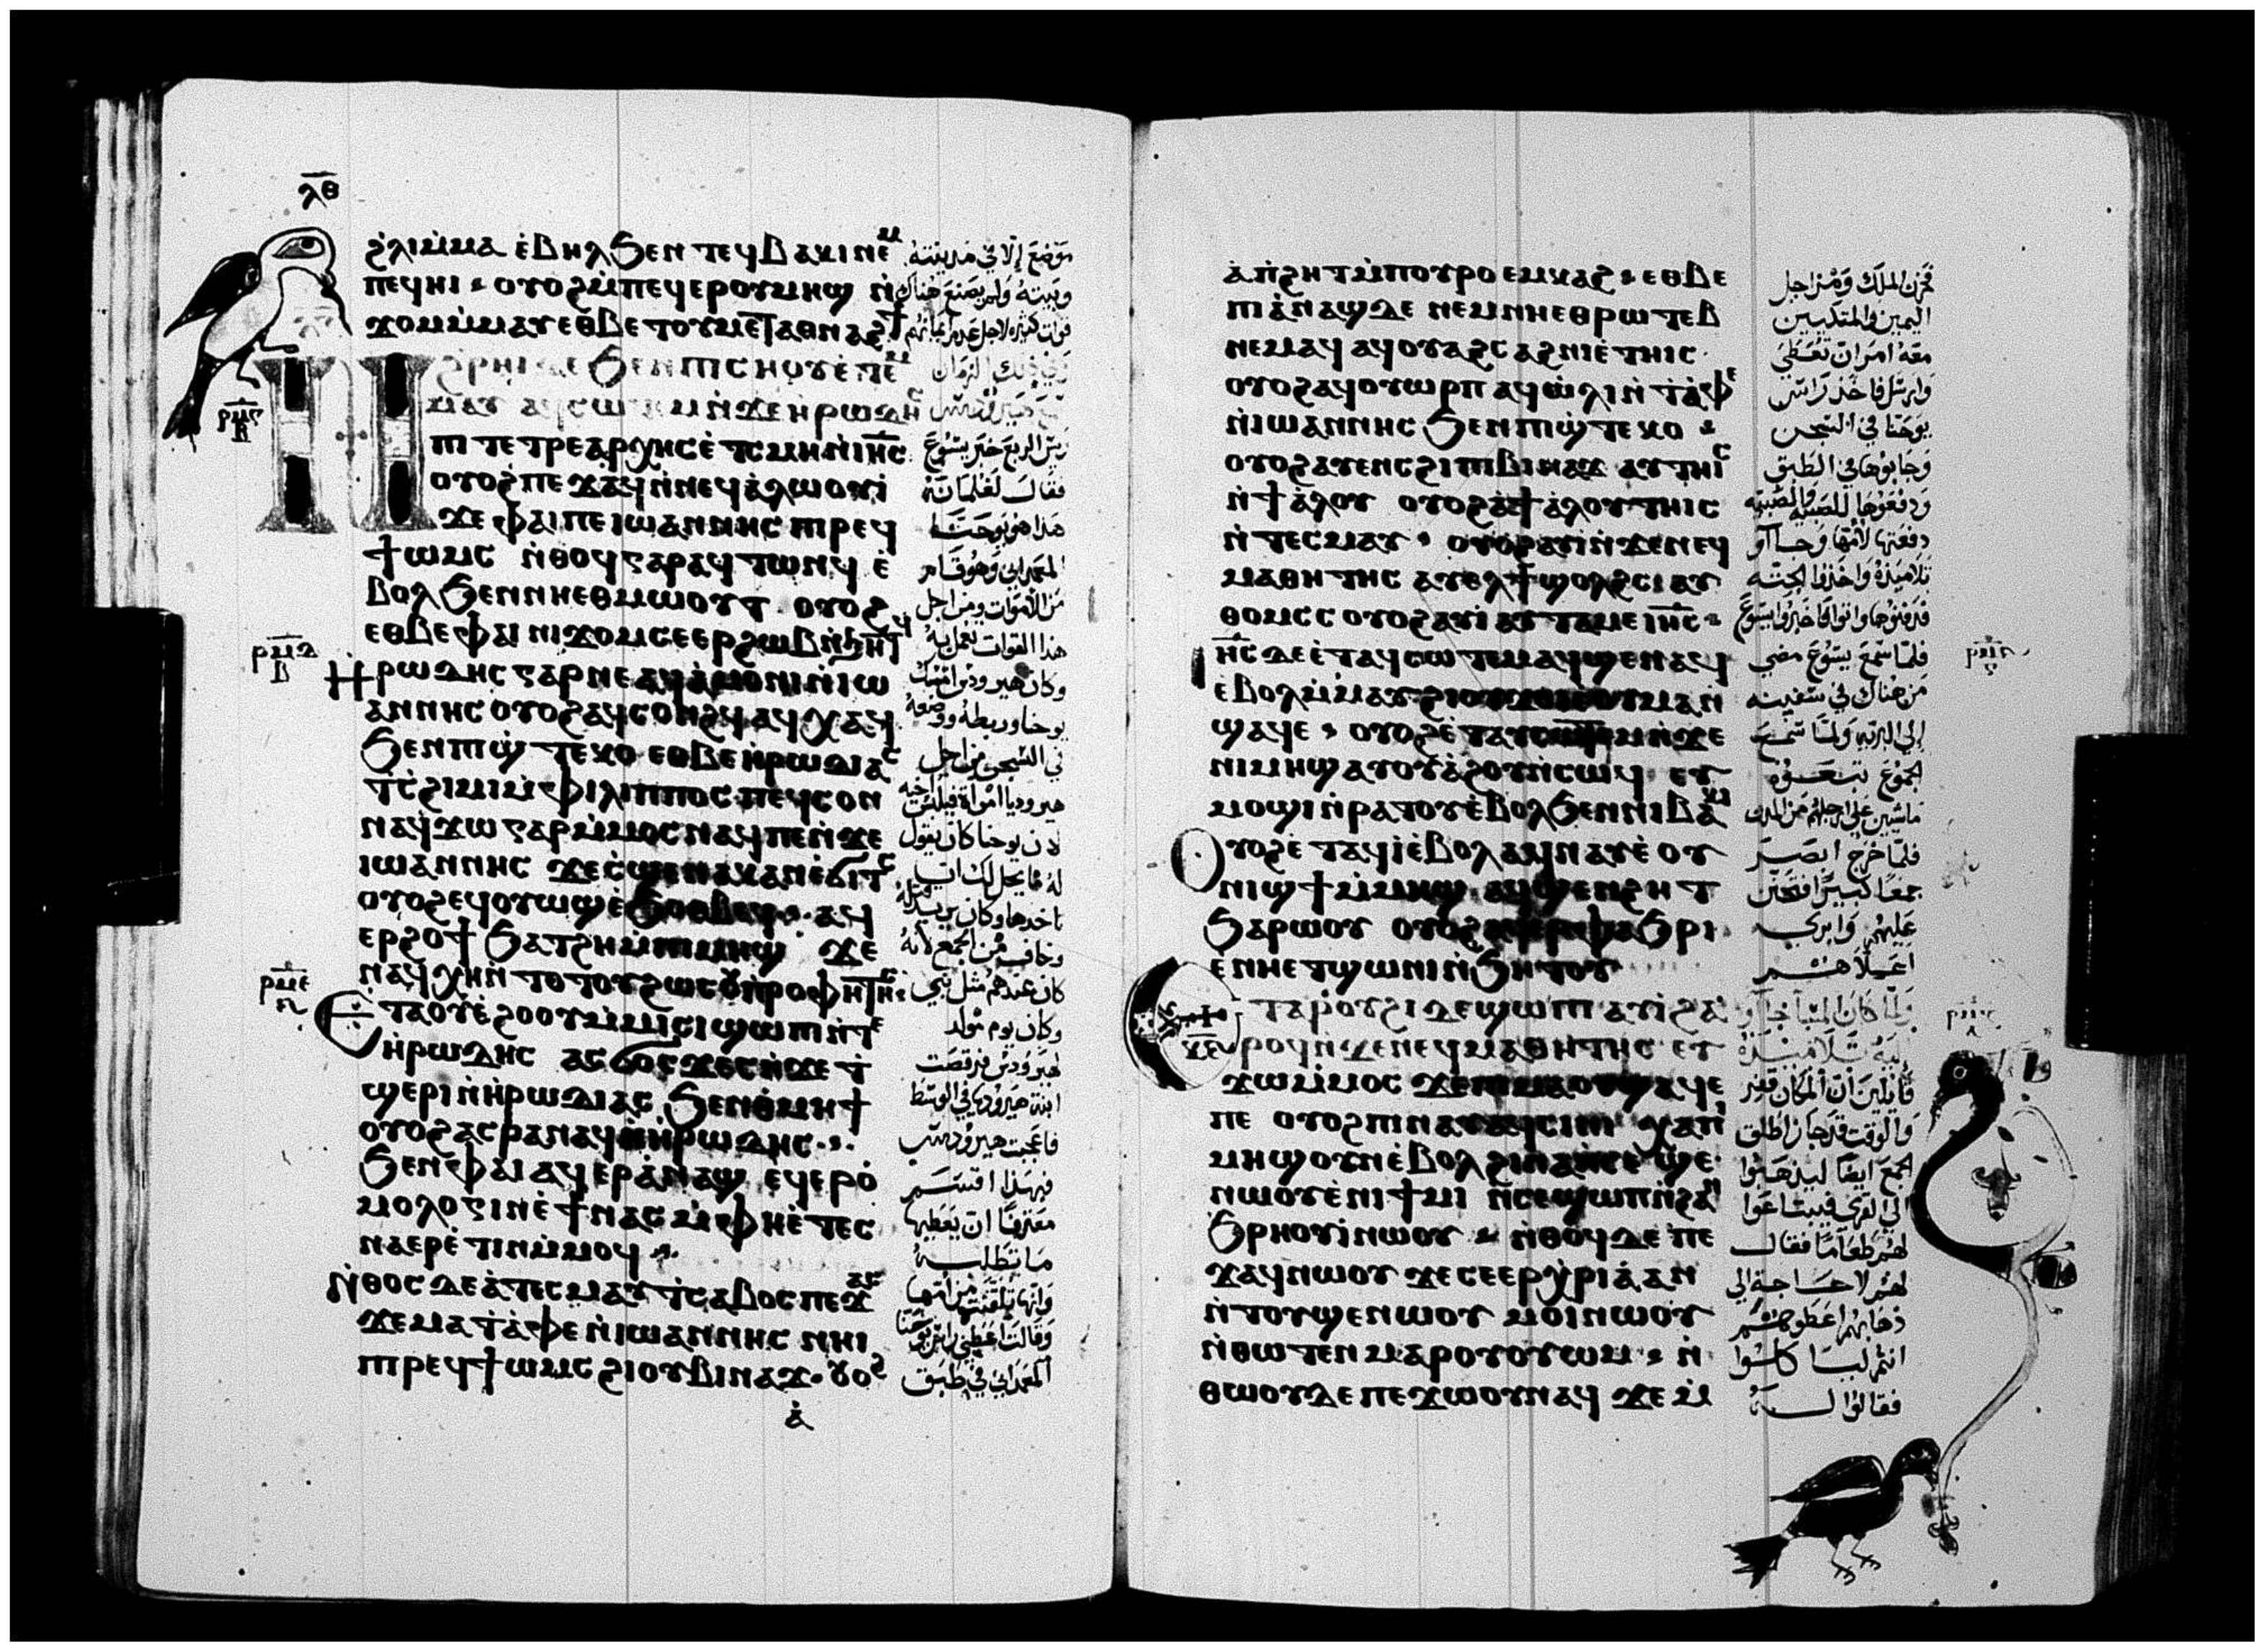 ⲗ̅ⲑ̅
ϩⲗⲓⲙ̀ⲙⲁ ⲉ̀ⲃⲏⲗ ϧⲉⲛ ⲧⲉϥⲃⲁⲕⲓ ⲛⲉⲙ
ⲡⲉϥⲏⲓ ⲟⲩⲟϩ ⲙ̀ⲡⲉϥⲉⲣ ⲟⲩⲙⲏϣ ⲛ̀
ϫⲟⲙ ⲙ̀ⲙⲁⲩ ⲉⲑⲃⲉ ⲧⲟⲩⲙⲉⲧⲁⲑⲛⲁϩϯ
ϩⲣⲏⲓ ⲇⲉ ϧⲉⲛ ⲡⲓⲥⲏⲟⲩ ⲉ̀ⲧⲉⲙ
ⲙⲁⲩ ⲁϥⲥⲱⲧⲉⲙ ⲛ̀ϫⲉ ⲏⲣⲱⲇⲏⲥ
ⲡⲓⲧⲉⲧⲣⲉⲁⲣⲭⲏⲥ ⲉ̀ⲧⲥⲙⲏ ⲛ̀ⲓⲏ̅ⲥ̅
ⲟⲩⲟϩ ⲡⲉϫⲁϥ ⲛ̀ⲛⲉϥⲁ̀ⲗⲱⲟⲩⲓ̀
ϫⲉ ⲫⲁⲓ ⲡⲉ ⲓⲱⲁⲛⲛⲏⲥ ⲡⲓⲣⲉϥ
ϯⲱⲙⲥ ⲛ̀ⲑⲟϥ ⲅⲁⲣ ⲁϥⲧⲱⲛϥ ⲉ̀
ⲃⲟⲗ ϧⲉⲛ ⲛⲏⲉⲑⲙⲱⲟⲩⲧ ⲟⲩⲟϩ
ⲉⲑⲃⲉ ⲫⲁⲓ ⲛⲓϫⲟⲙ ⲥⲉⲉⲣϩⲱⲃ ⲛ̀ϧⲏⲧϥ
ⲣ̅ⲙ̅ⲇ̅
ⲃ
ⲏⲣⲱⲇⲏⲥ ⲅⲁⲣ ⲛⲉ ⲁϥⲁ̀ⲙⲟⲛⲓ ⲛ̀ⲓⲱ
ⲁⲛⲛⲏⲥ ⲟⲩⲟϩ ⲁϥⲥⲟⲛϩϥ ⲁϥⲭⲁϥ
ϧⲉⲛ ⲡⲓϣ̀ⲧⲉⲕⲟ ⲉⲑⲃⲉ ⲏⲣⲱⲇⲓⲁⲥ
ⲧ̀ⲥϩⲓⲙⲓ ⲙ̀ⲫⲓⲗⲓⲡⲡⲟⲥ ⲡⲉϥⲥⲟⲛ
ⲛⲁϥϫⲱ ⲅⲁⲣ ⲙ̀ⲙⲟⲥ ⲛⲁϥ ⲡⲉ ⲛ̀ϫⲉ
ⲓⲱⲁⲛⲛⲏⲥ ϫⲉ ⲥ̀ϣⲉ ⲛⲁⲕ ⲁⲛ ⲉ̀ϭⲓⲧⲥ
ⲟⲩⲟϩ ⲉϥⲟⲩⲱϣ ⲉ̀ϧⲟⲑⲃⲉϥ ⲁϥ
ⲉⲣϩⲟϯ ϧⲁⲧϩⲏ ⲙ̀ⲡⲓⲙⲏϣ ϫⲉ
ⲛⲁϥⲭⲏ ⲛ̀ⲧⲟⲧⲟⲩ ϩⲱⲥ ⲟⲩⲡⲣⲟⲫⲏⲧⲏⲥ
ⲣ̅ⲙ̅ⲉ̅
ⲉⲧⲁ ⲟⲩⲉ̀ϩⲟⲟⲩ ⲙ̀ⲙⲓⲥⲓ ϣⲱⲡⲓ ⲛ̀ⲧⲉ
ⲏⲣⲱⲇⲏⲥ ⲁⲥϭⲟⲥϫⲉⲥ ⲛ̀ϫⲉ ⲧ̀
ϣⲉⲣⲓ ⲛ̀ⲏⲣⲱⲇⲓⲁⲥ ϧⲉⲛ ⲑⲙⲏϯ
ⲟⲩⲟϩ ⲁⲥⲣⲁⲛⲁϥ ⲛ̀ⲏⲣⲱⲇⲏⲥ
ϧⲉⲛ ⲫⲁⲓ ⲁϥⲉⲣⲁ̀ⲛⲁϣ ⲉϥⲉⲣⲟ̀
ⲙⲟⲗⲟⲅⲓⲛ ⲉ̀ϯ ⲛⲁⲥ ⲙ̀ⲫⲏⲉ̀ⲧⲉⲥ
ⲛⲁⲉⲣⲉ̀ⲧⲓⲛ ⲙ̀ⲙⲟϥ
ⲛ̀ⲑⲟⲥ ⲇⲉ ⲁ̀ ⲧⲉⲥⲙⲁⲩ ⲧ̀ⲥⲁⲃⲟⲥ ⲡⲉϫⲁⲥ
ϫⲉ ⲙⲁ ⲧ̀ⲁ̀ⲫⲉ ⲛ̀ⲓⲱⲁⲛⲛⲏⲥ ⲛⲏⲓ
ⲡⲓⲣⲉϥϯⲱⲙⲥ ϩⲓ ⲟⲩⲃⲓⲛⲁϫ ⲟⲩⲟϩ
ⲁ̀
موضع إلا في مدينته
وبيته ولم يصنع هناك
قوات كثيرة لاجل عدم ايمانهم
في ذلك الزمان
ريس الربع خبر يسوع
فقال لغلمانه
هذا هو يوحنا
المعمداني وهو قام
من الأموات ومن اجل
هذا القوات تعمل به
وكان هيرودس امسك
يوحنا وربطه ووضعه
في السجن من اجل
هيروديا امراة فيلبس اخيه
لان يوحنا كان يقول
له ما يحل لك ان
تاخدها وكان يريد قتله
وخاف من الجمع لأنه
كان عندهم مثل نبي
وكان يوم مولد
هيرودس فرقصت
ابنة هيروديا في الوسط
فاعجبت هيرودس
فبهذا اقسم
معترفًا ان يعطيها
ما تطلبه
وانها تلقنت من امها
وقالت اعطيني راس يوحنا
المعمداني في طبق
ⲁ̀ ⲡ̀ϩⲏⲧ ⲙ̀ⲡⲟⲩⲣⲟ ⲉⲙⲕⲁϩ ⲉⲑⲃⲉ
ⲡⲓⲁ̀ⲛⲁϣ ⲇⲉ ⲛⲉⲙ ⲛⲏⲉⲑⲣⲱⲧⲉⲃ
ⲛⲉⲙⲁϥ ⲁϥⲟⲩⲁϩⲥⲁϩⲛⲓ ⲉ̀ⲧⲏⲓⲥ
ⲟⲩⲟϩ ⲁϥⲟⲩⲱⲣⲡ ⲁϥⲱ̀ⲗⲓ ⲛ̀ⲧ̀ⲁ̀ⲫⲉ
ⲛ̀ⲓⲱⲁⲛⲛⲏⲥ ϧⲉⲛ ⲡⲓϣ̀ⲧⲉⲕⲟ
ⲟⲩⲟϩ ⲁⲩⲉⲛⲥ ϩⲓ ⲡⲓⲃⲓⲛⲁϫ ⲁⲩⲧⲏⲓⲥ
ⲛ̀ϯⲁ̀ⲗⲟⲩ ⲟⲩⲟϩ ⲁ̀ ϯⲁ̀ⲗⲟⲩ ⲧⲏⲓⲥ
ⲛ̀ⲧⲉⲥⲙⲁⲩ ⲟⲩⲟϩ ⲁⲩⲓ̀ ⲛ̀ϫⲉ ⲛⲉϥ
ⲙⲁⲑⲏⲧⲏⲥ ⲁⲩⲉⲗ ϯϣⲟⲗϩⲥ ⲁⲩ
ⲑⲟⲙⲥⲥ ⲟⲩⲟϩ ⲁⲩⲓ̀ ⲁⲩⲧⲁⲙⲉ ⲓⲏ̅ⲥ̅
ⲓⲏ̅ⲥ̅ ⲇⲉ ⲉ̀ⲧⲁϥⲥⲱⲧⲉⲙ ⲁϥϣⲉⲛⲁϥ
ⲉ̀ⲃⲟⲗ ⲙ̀ⲙⲁⲩ ϩⲓ ⲟⲩϫⲟⲓ ⲉ̀ⲟⲩⲙⲁ ⲛ̀
ϣⲁϥⲉ ⲟⲩⲟϩ ⲉ̀ⲧⲁⲩⲥⲱⲧⲉⲙ ⲛ̀ϫⲉ
ⲛⲓⲙⲏϣ ⲁⲩⲟⲩⲁ̀ϩⲟⲩ ⲛ̀ⲥⲱϥ ⲉⲩ
ⲙⲟϣⲓ ⲛ̀ⲣⲁⲧⲟⲩ ⲉ̀ⲃⲟⲗ ϧⲉⲛ ⲛⲓⲃⲁⲕⲓ
ⲟⲩⲟϩ ⲉ̀ⲧⲁϥⲓ̀ ⲉ̀ⲃⲟⲗ ⲁϥⲛⲁⲩ ⲉ̀ⲟⲩ
ⲛⲓϣϯ ⲙ̀ⲙⲏϣ ⲁϥϣⲉⲛϩⲏⲧ
ϧⲁⲣⲱⲟⲩ ⲟⲩⲟϩ ⲁϥⲉⲣⲫⲁϧⲣⲓ
ⲉⲛⲏⲉⲧϣⲱⲛⲓ ⲛ̀ϧⲏⲧⲟⲩ
ⲉⲧⲁ ⲣⲟⲩϩⲓ ⲇⲉ ϣⲱⲡⲓ ⲁⲩⲓ̀ ϩⲁ
ⲣⲟϥ ⲛ̀ϫⲉ ⲛⲉϥⲙⲁⲑⲏⲧⲏⲥ ⲉⲩ
ϫⲱ ⲙ̀ⲙⲟⲥ ϫⲉ ⲡⲓⲙⲁ ⲟⲩϣⲁϥⲉ
ⲡⲉ ⲟⲩⲟϩ ⲡⲓⲛⲁⲩ ⲁϥⲥⲓⲛⲓ ⲭⲁ ⲡⲓ
ⲙⲏϣ ⲟⲩⲛ ⲉ̀ⲃⲟⲗ ϩⲓⲛⲁ ⲛ̀ⲥⲉϣⲉ
ⲛⲱⲟⲩ ⲉ̀ⲛⲓϯⲙⲓ ⲛ̀ⲥⲉϣⲱⲡ ⲛ̀ϩⲁⲛ
ϧⲣⲏⲟⲩⲓ̀ ⲛⲱⲟⲩ ⲛ̀ⲑⲟϥ ⲇⲉ ⲡⲉ
ϫⲁϥ ⲛⲱⲟⲩ ϫⲉ ⲥⲉⲉⲣⲭ̀ⲣⲓⲁ̀ ⲁⲛ
ⲛ̀ⲧⲟⲩϣⲉⲛⲱⲟⲩ ⲙⲟⲓ ⲛⲱⲟⲩ
ⲛ̀ⲑⲱⲧⲉⲛ ⲙⲁⲣⲟⲩⲟⲩⲱⲙ ⲛ̀
ⲑⲱⲟⲩ ⲇⲉ ⲡⲉϫⲱⲟⲩ ⲛⲁϥ ϫⲉ ⲙ̀
فحزن الملك ومن اجل
اليمين والمتكيين
معه امر ان تعطى
وارسل فاخذ راس
يوحنا في السجن
وجابوها في الطبق
ودفعوها للصبية والصبية
دفعتها لأمها وجاآو
تلاميذه واخذوا الجثه
فدفنوها واتوا فاخبروا يسوع
فلما سمع يسوع مضى
من هناك في سفينه
إلى البريه ولما سمع
الجموع تبعوه
ماشيين على ارجلهم من المدن
فلما خرج ابصر
جمعًا كبيرًا فتحنن
عليهم وابرى
اعلاهم
ولما كان المسا جاآو
اليه تلاميذه
قايلين ان المكان قفر
والوقت قد جاز اطلق
الجمع ايضًا ليذهبوا
إلى القرى فيبتاعوا
لهم طعامًا فقال
لهم لا حاجة إلى
ذهابهم اعطوهم
انتم لياكلوا
فقالوا له